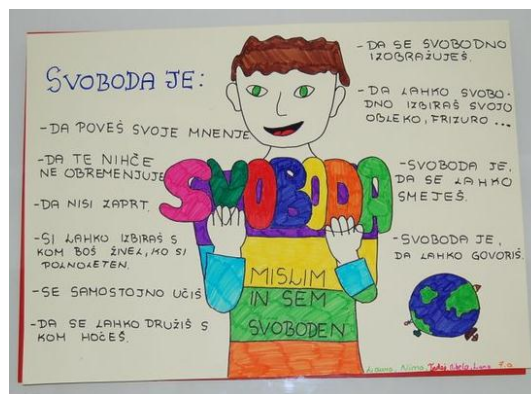 SVOBODA JE:
-DA POVEŠ SVOJE MNENJE
-DA TE NIHČE
NE OBREMENJUJE
-DA NISI ZAPRT.
-SI LAHKO IZBIRAŠ S
KOM BOŠ ŽIVEL, KO SI
POLNOLETEN.
-SE SAMOSTOJNO UČIŠ
-DA SE LAHKO DRUŽIŠ S
KOM HOČEŠ.
SVOBODA
MISLIM
IN SEM
SVOBODEN
-DA SE SVOBODNO
IZOBRAŽUJEŠ.
-DA LAHKO SVOBO-
DNO IZBIRAŠ SVOJO
OBLEKO, FRIZURO ...
-SVOBODA JE,
DA SE LAHKO
SMEJEŠ.
-SVOBODA JE,
DA LAHKO GOVORIŠ.
7.a